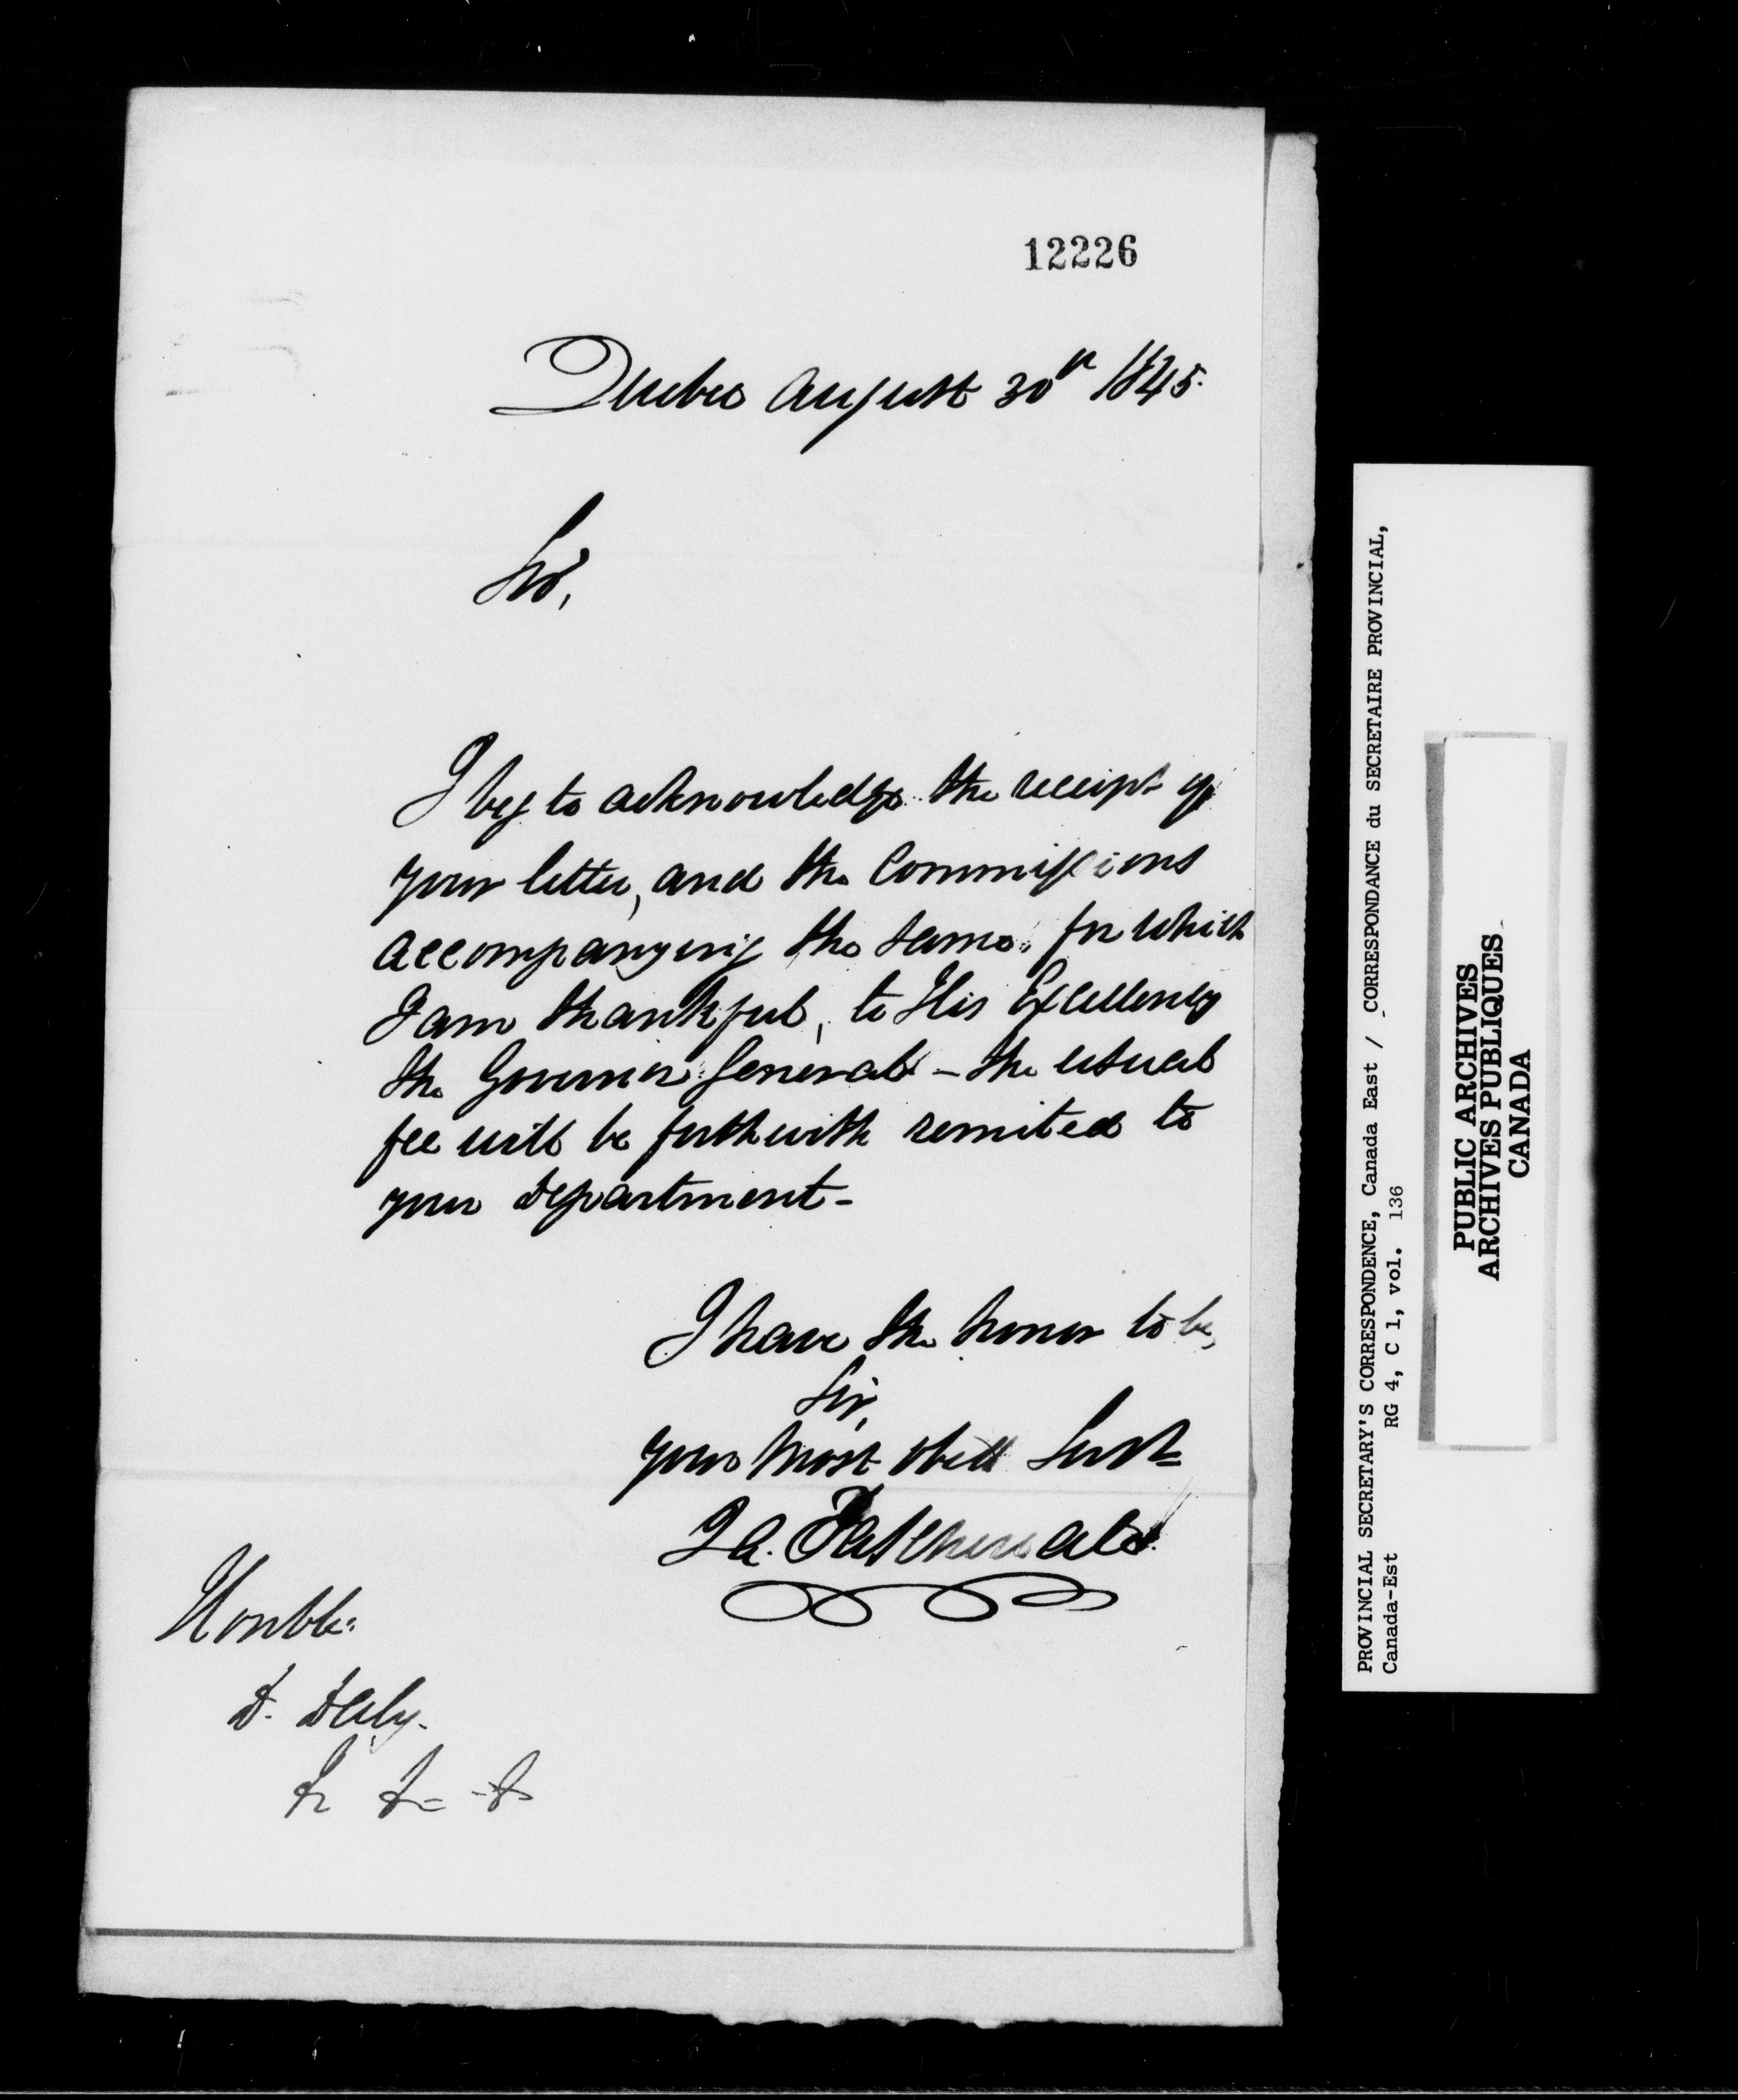 12226
Quebec August 30th 1845.
Sir,
I beg to acknowledge the receipt of
your letter, and the Commissions
accompanying the same, for which
I am thankful, to His Excellency
the Governor General - the usual
fee will be forthwith remited to
your department -
I have the honor to be,
Sir,
Your most obedt Servt
J. A. Taschereau
Honble.
D. Daly.
PROVINCIAL SECRETARY'S CORRESPONDENCE, Canada East / CORRESPONDANCE du SECRETAIRE PROVINCIAL,
Canada-Est RG 4, C 1, vol. 136
PUBLIC ARCHIVES
ARCHIVES PUBLIQUES
CANADA